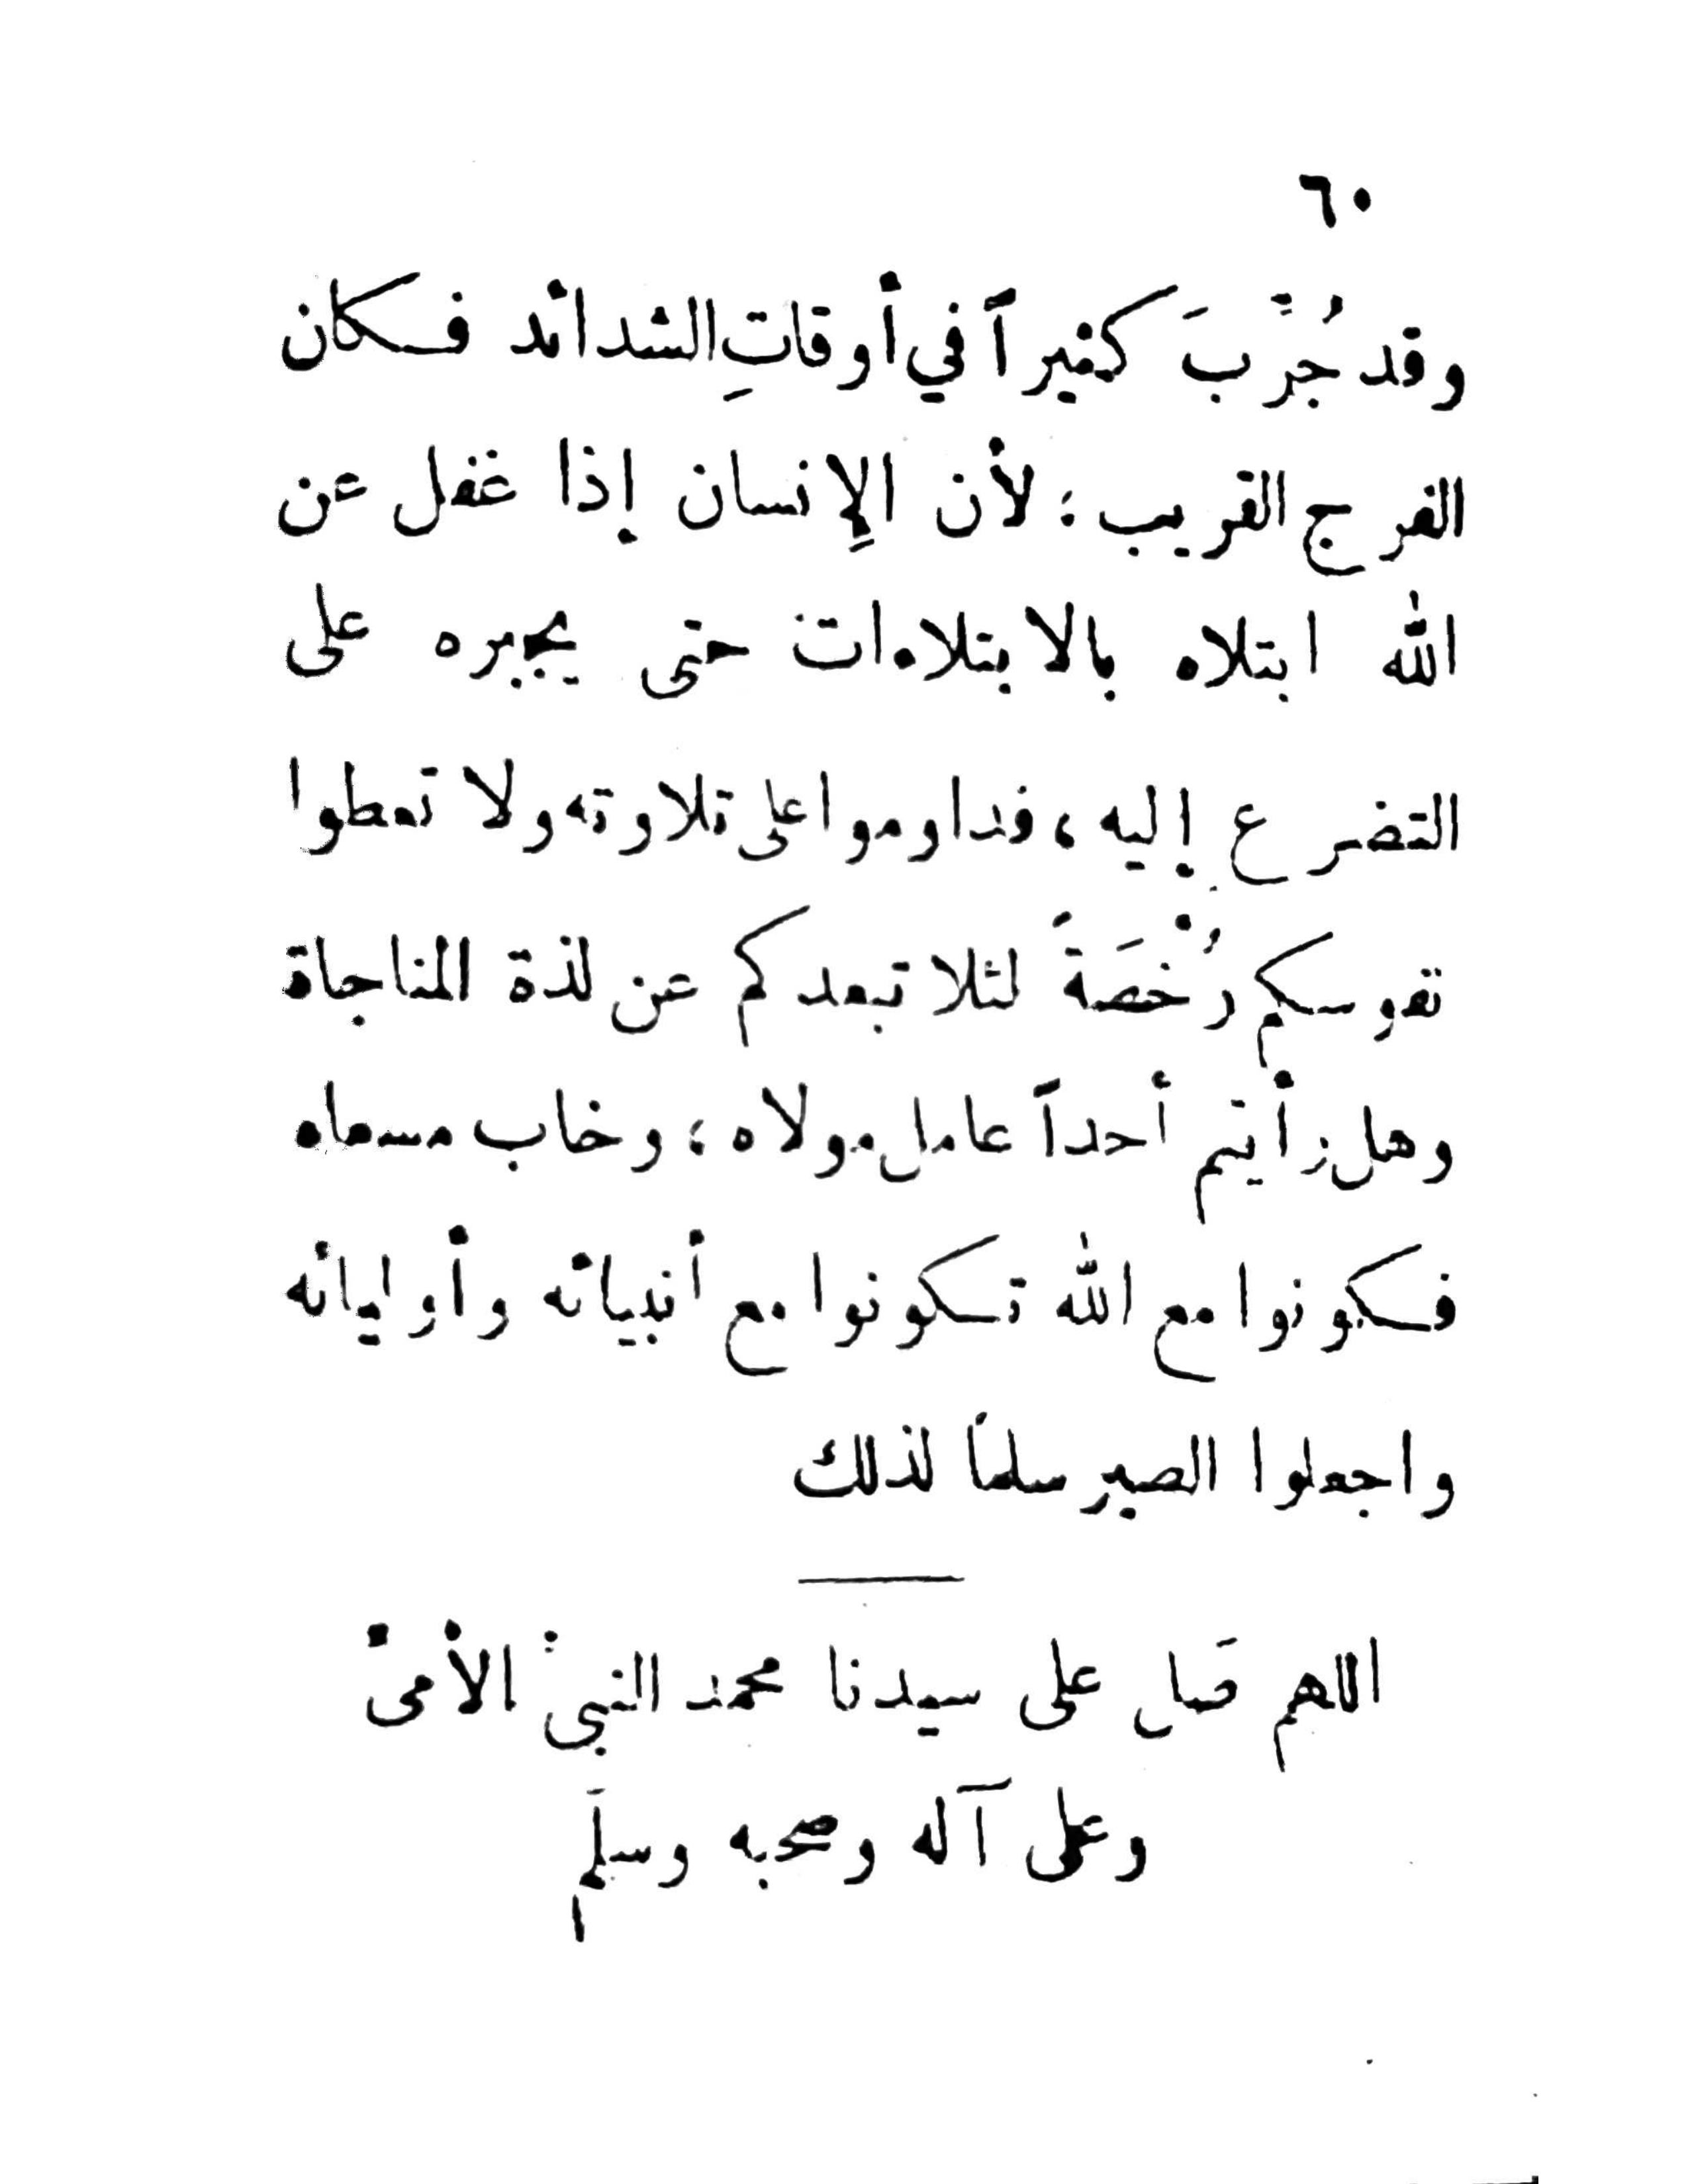 ٦٠
وقد جُرِّبَ كثيراً في أوقاتِ الشدائد فكان
الفرج القريب؛ لأن الإِنسان إذا غفل عن
الله ابتلاه بالابتلاءات حتى يجبره على
التضرع إليه، فداوموا على تلاوته ولا تعطوا
نفوسكم رُخْصَةً لئلا تبعدكم عن لذة المناجاة
وهل رأيتم أحداً عامل مولاه؛ وخاب مسعاه
فكونوا مع الله تكونوا مع أنبيائه وأوليائه
واجعلوا الصبر سلماً لذلك
اللهم صَل على سيدنا محمد النبيّ الأمىّ
وعلى آله وصحبه وسلَم